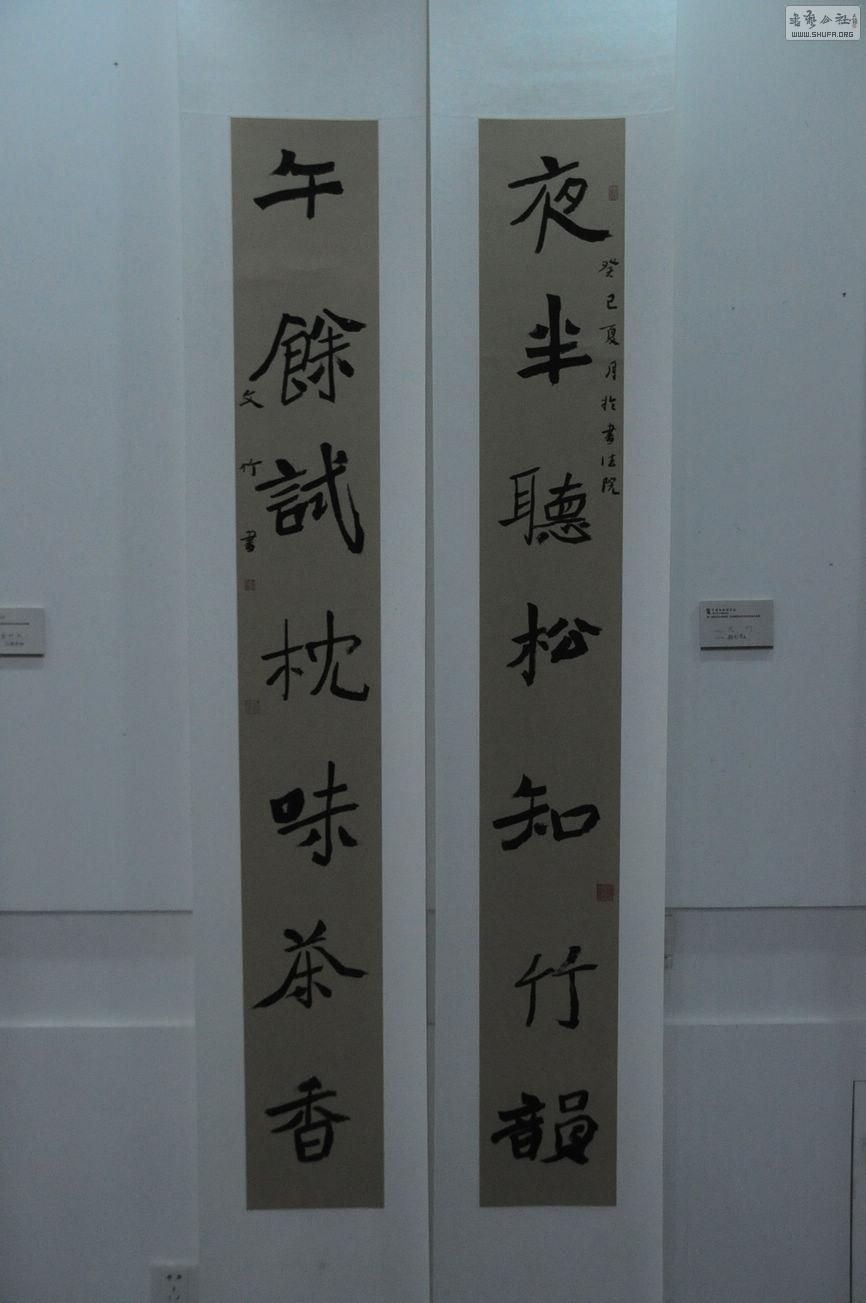 夜半聽松知竹韻
癸巳夏月於書法院
午餘試枕味茶香
文竹書
WWW.SHUFA.ORG